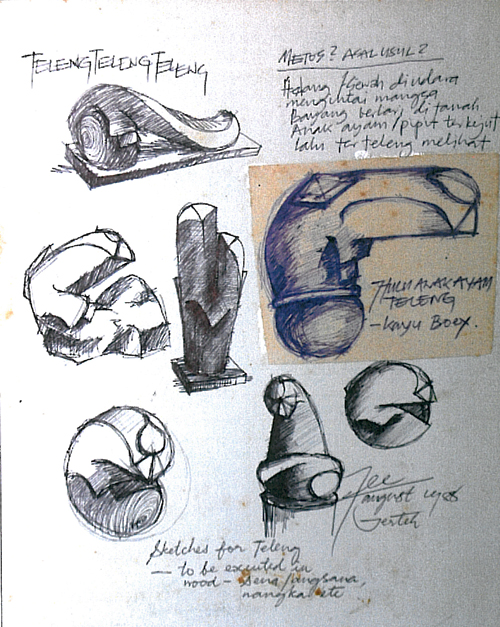 TELENGTELENGTELENG
METOS? ASAL USUL?
Helang / Gersh di udara
mengintai mangsa
Bayang berlari di tanah
Anak ayam / pipit terkejut
lalu terteleng melihat
HULU ANAK AYAM
TELENG
- kayu Boex.
august
Gertek
Sketches for Teleng
— to be executed in
wood - sena/angsana,
nangka etc